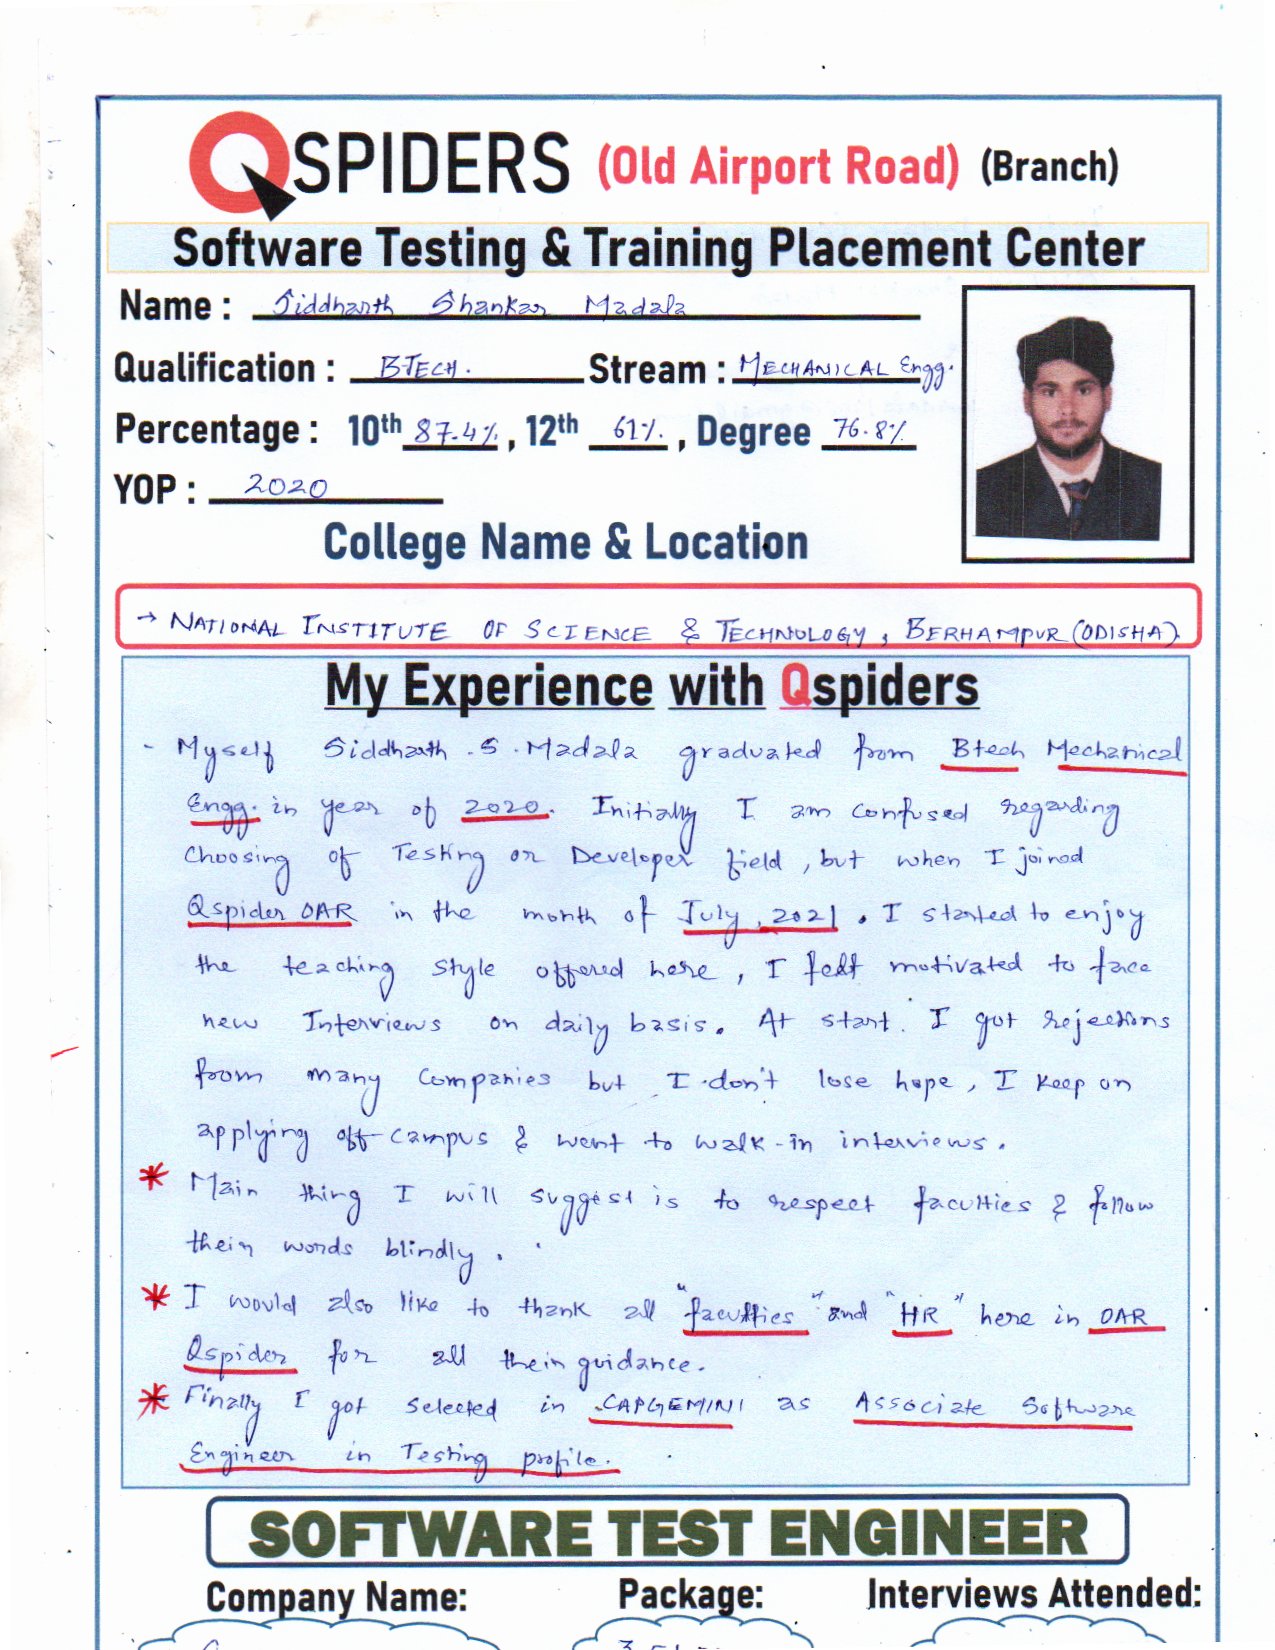 QSPIDERS (Old Airport Road) (Branch)
Software Testing & Training Placement Center
Name : Siddharth Shankar Madala
Qualification : B-TECH. Stream : MECHANICAL Engg.
Percentage : 10th 87.4%, 12th 61%, Degree 76.8%
YOP : 2020
College Name & Location
→ NATIONAL INSTITUTE OF SCIENCE & TECHNOLOGY, BERHAMPUR (ODISHA)
My Experience with Qspiders
- Myself Siddharth .S. Madala graduated from Btech Mechanical
Engg. in year of 2020. Initially I am confused regarding
choosing of Testing or Developer field, but when I joined
Qspider OAR in the month of July, 2021. I started to enjoy
the teaching style offered here, I felt motivated to face
new Interviews on daily basis. At start I got rejections
from many companies but I don't lose hope, I keep on
applying off-campus & went to walk-in interviews.
* Main thing I will suggest is to respect faculties & follow
their words blindly.
* I would also like to thank all "faculties" and "HR" here in OAR
Qspider for all their guidance.
* Finally I got selected in CAPGEMINI as Associate Software
Engineer in Testing profile.
SOFTWARE TEST ENGINEER
Company Name: Package: Interviews Attended: